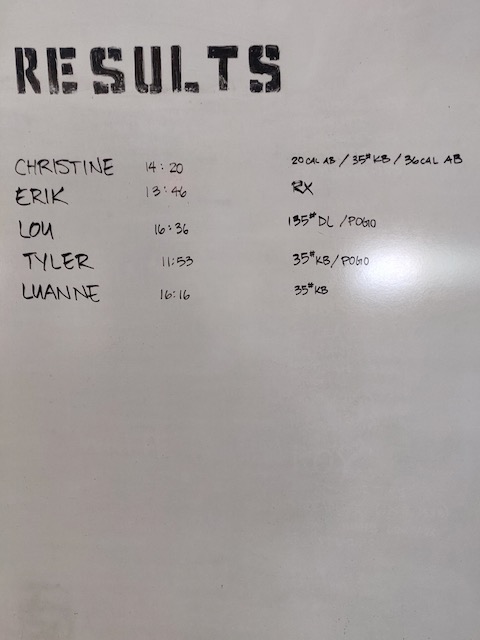 RESULTS
CHRISTINE 14:20 20 CAL AB / 35# KB / 36 CAL AB
ERIK 13:46 RX
LOU 16:36 135# DL / POGO
TYLER 11:53 35# KB / POGO
LUANNE 16:16 35# KB